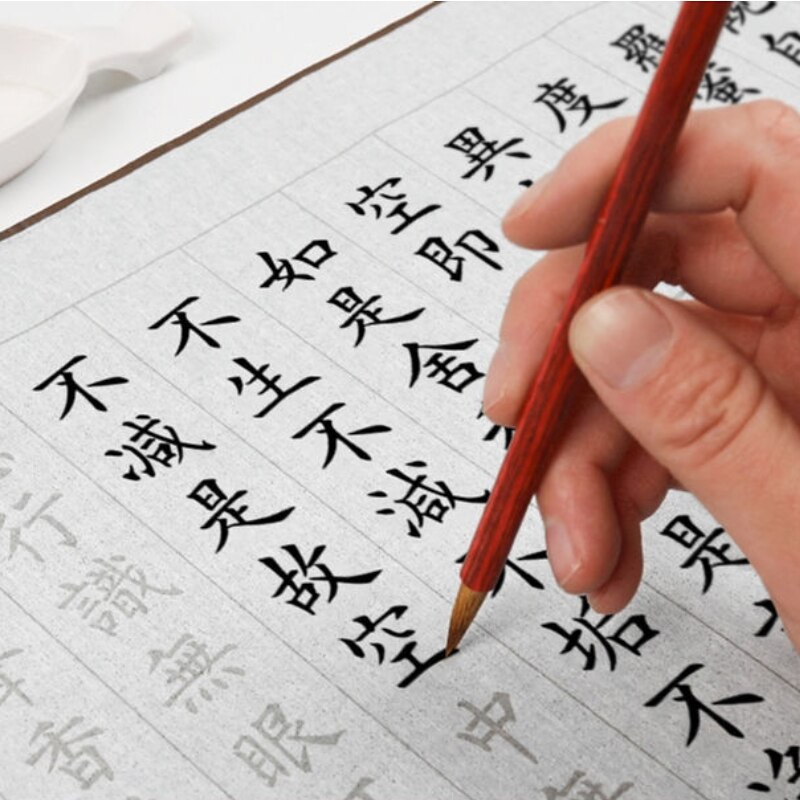 自
羅蜜
度
異
空即
如是舍是
不生不減不垢不
不減是故空中
行識無眼
香